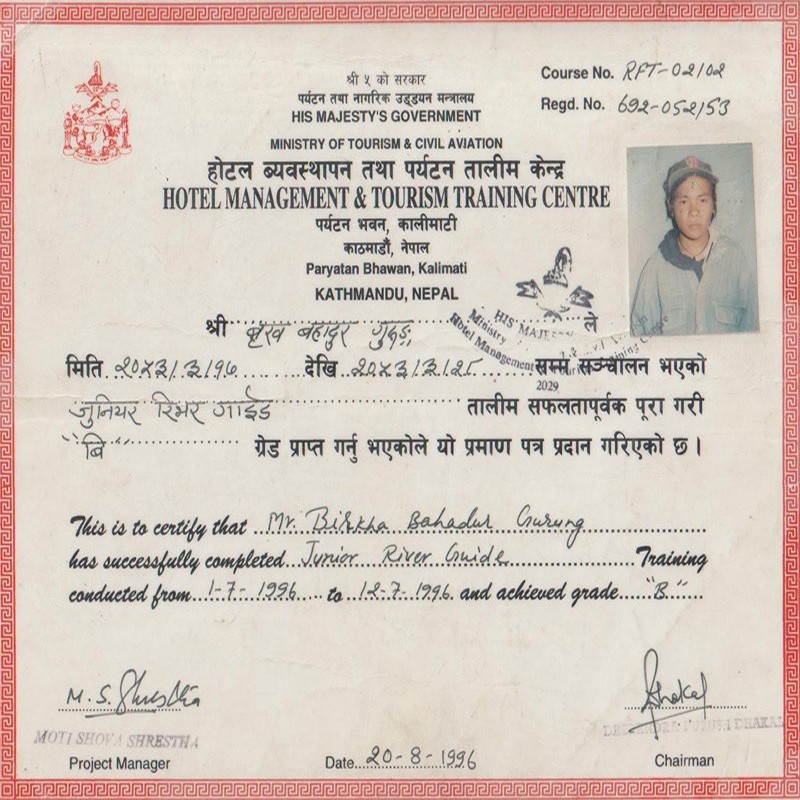 श्री ५ को सरकार
पर्यटन तथा नागरिक उड्डयन मन्त्रालय
HIS MAJESTY'S GOVERNMENT
MINISTRY OF TOURISM & CIVIL AVIATION
Course No. RFT-02/02
Regd. No. 692-052/53
होटल व्यवस्थापन तथा पर्यटन तालीम केन्द्र
HOTEL MANAGEMENT & TOURISM TRAINING CENTRE
पर्यटन भवन, कालीमाटी
काठमाडौं, नेपाल
Paryatan Bhawan, Kalimati
KATHMANDU, NEPAL
HIS MAJES
Ministry
Hotel Management
2029
श्री बृख बहादुर गुरुङ ले
मिति २०५३/३/१७ देखि २०५३/३/२८ सम्म सञ्चालन भएको
जुनियर रिभर गाईड तालीम सफलतापूर्वक पूरा गरी
"बि" ग्रेड प्राप्त गर्नु भएकोले यो प्रमाण पत्र प्रदान गरिएको छ।
This is to certify that Mr. Birkha Bahadur Gurung
has successfully completed Junior River Guide Training
conducted from 1-7-1996 to 12-7-1996 and achieved grade "B"
M. S. Shrestha
MOTI SHOVA SHRESTHA
Project Manager
Date 20-8-1996
Dhakal
DHAKAL
Chairman